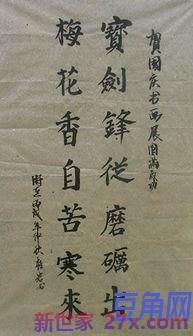 賀國慶书画展圆满成功
寳劍鋒從磨礪出
梅花香自苦寒來
时在丙戌年仲秋
豆角网
新世家 27x.com